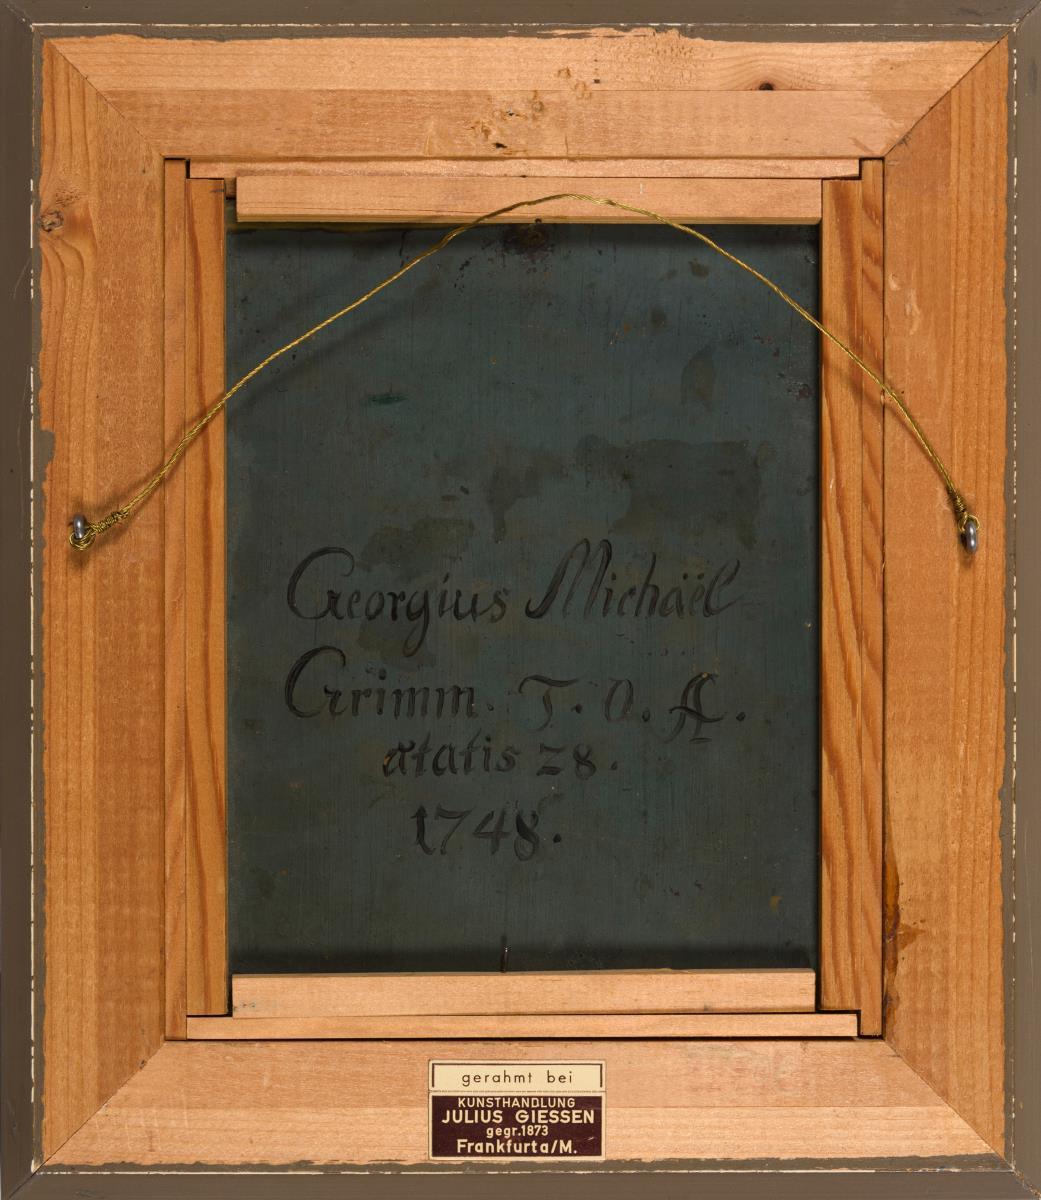 Georgius Michäël
Grimm. T. O. A.
ætatis 28.
1748.
gerahmt bei
KUNSTHANDLUNG
JULIUS GIESSEN
gegr. 1873
Frankfurt a/M.